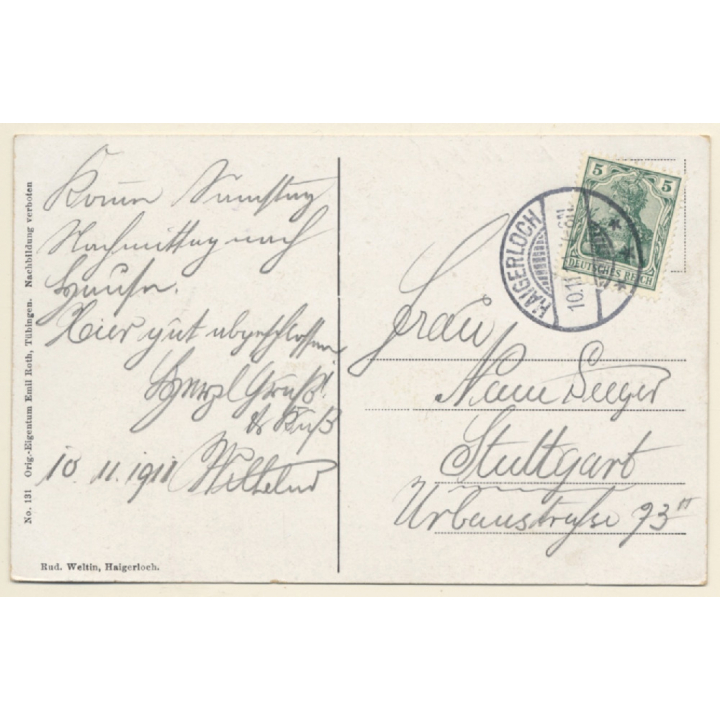 Komme Samstag
Nachmittag nach
Hause.
Hier gut abgeschlossen
Herzl Gruß!
& Kuß
10. 11. 1911 Wilhelm
Frau
Seeger
Stuttgart
Urbanstraße 93 II
5 5
DEUTSCHES REICH
HAIGERLOCH
10.11
No. 131 Orig.-Eigentum Emil Roth, Tübingen. Nachbildung verboten
Rud. Weltin, Haigerloch.